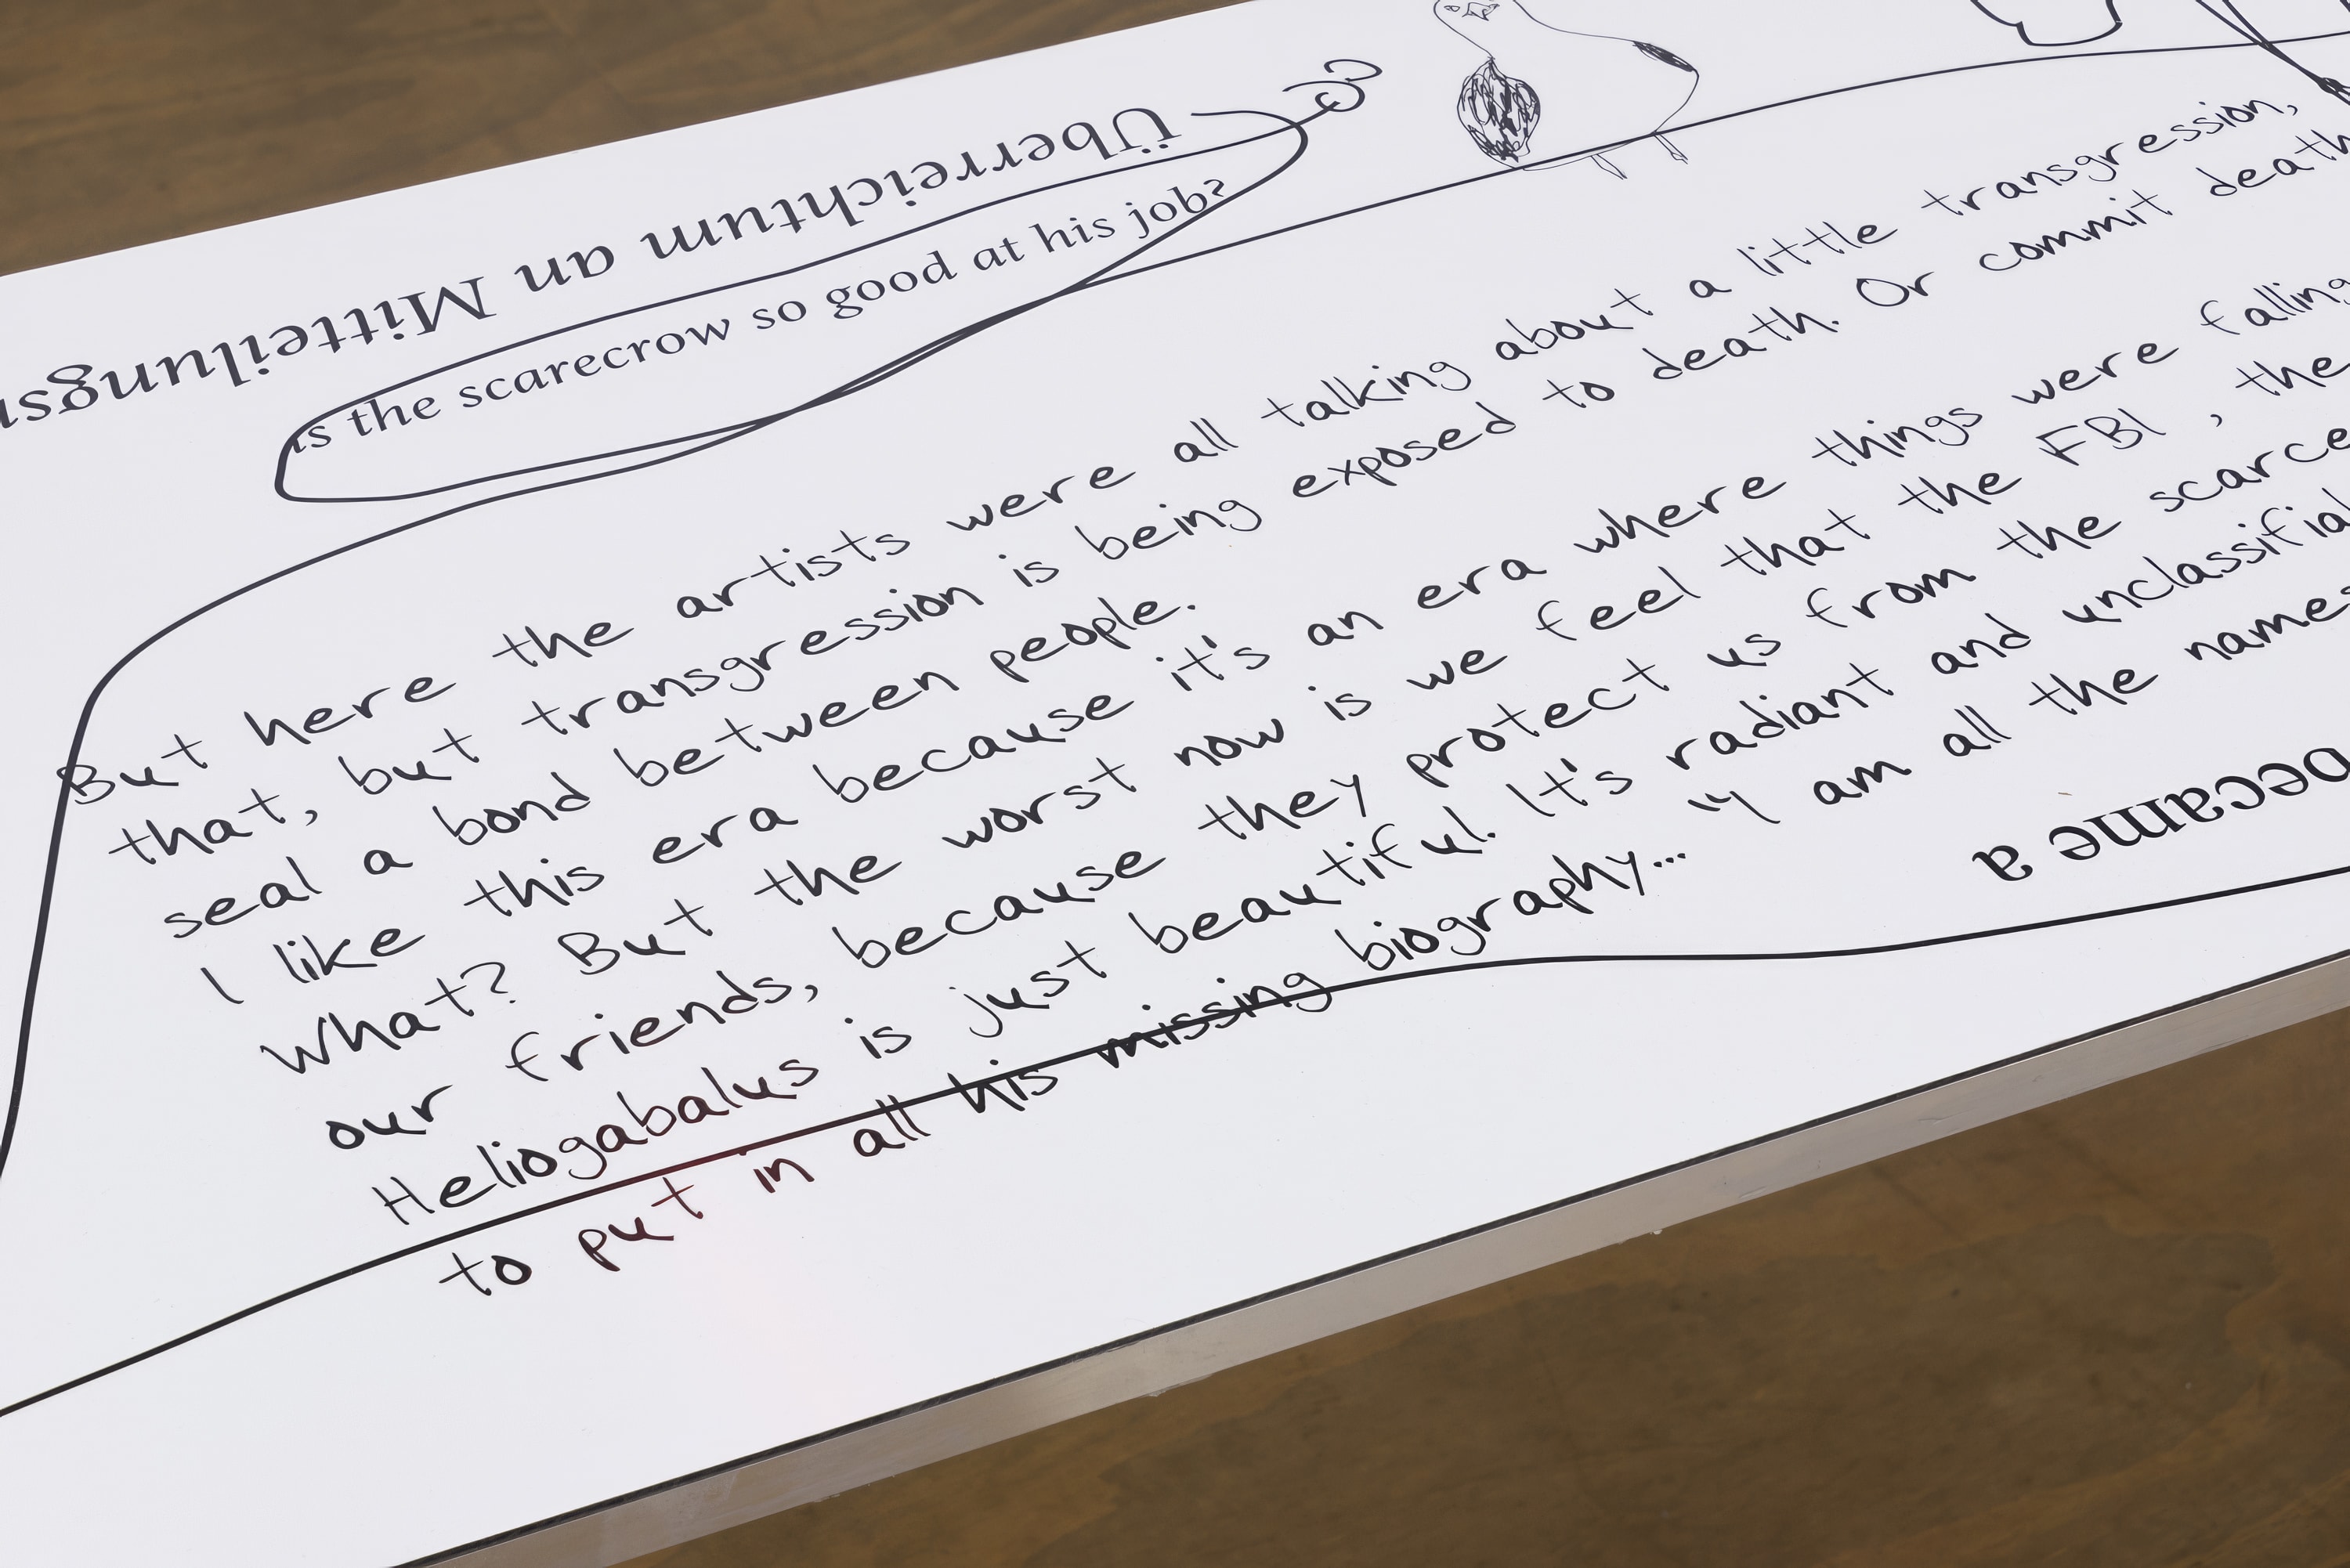 Überreichtum an Mitteilungs
is the scarecrow so good at his job?
But here the artists were all talking about a little transgression,
that, but transgression is being exposed to death. Or commit death
seal a bond between people.
I like this era because it's an era where things were falling
What? But the worst now is we feel that the FBI, the
our friends, because they protect us from the scarce
Heliogabalus is just beautiful. It's radiant and unclassifia
to put in all his missing biography... "I am all the names
became a